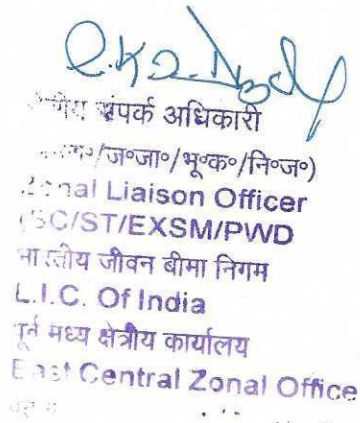 संपर्क अधिकारी
/ज०जा०/भू०क०/नि०ज०)
Zonal Liaison Officer
(SC/ST/EXSM/PWD
भारतीय जीवन बीमा निगम
L.I.C. Of India
पूर्व मध्य क्षेत्रीय कार्यालय
East Central Zonal Office